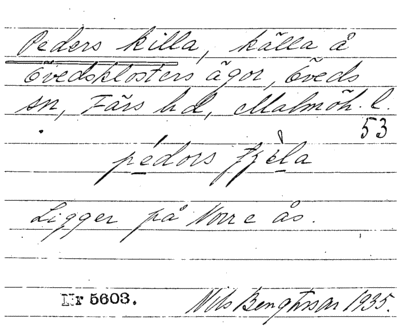 Peders killa, källa å
Övedsklosters ägor, Öveds
sn, Färs hd, Malmöh. l.
53
pédors tjèla
Ligger på Norre ås.
Nr 5603. Nils Bengtsson 1935.